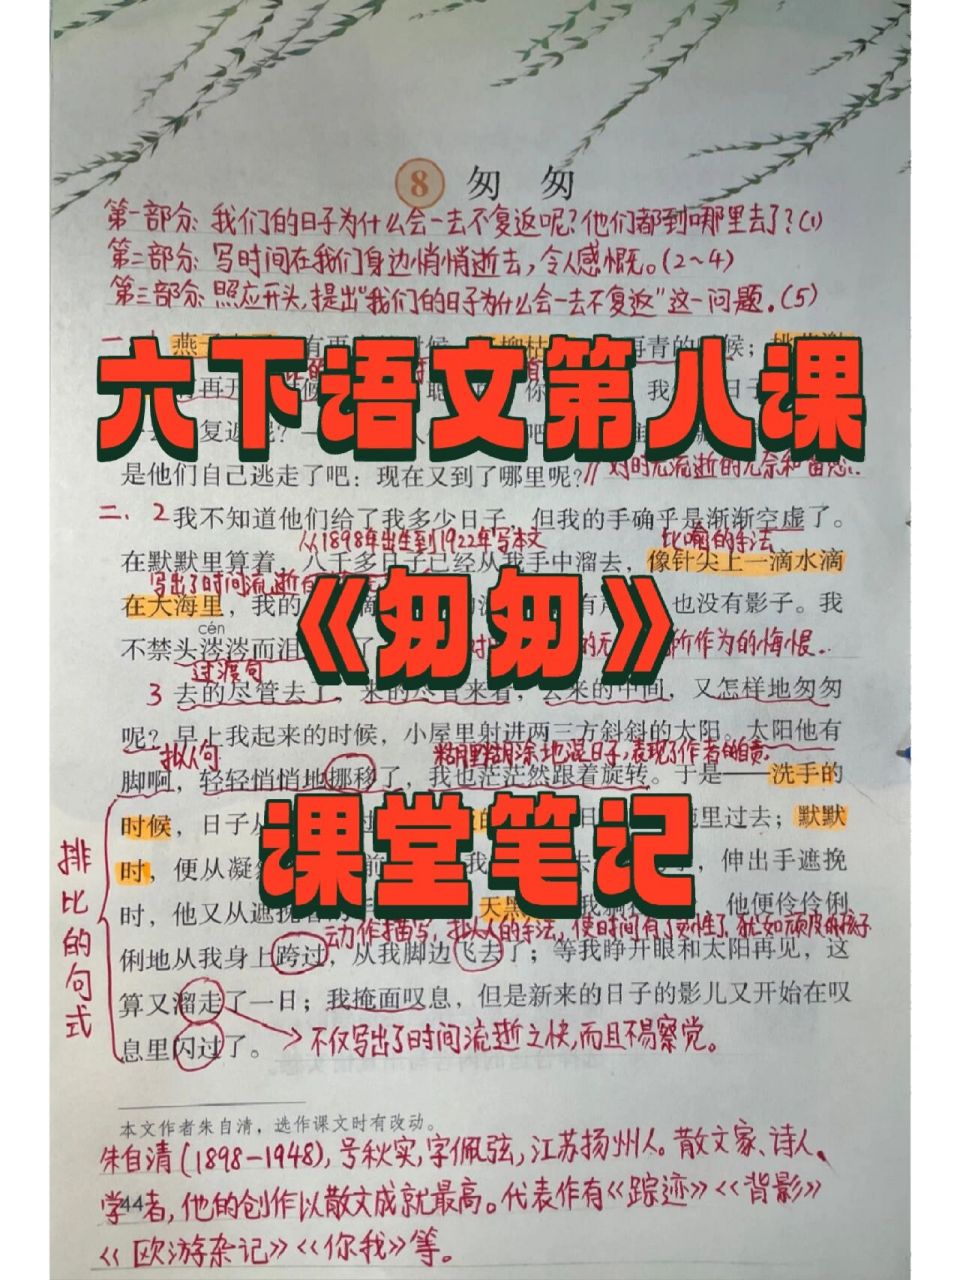 8 匆匆
第一部分：我们的日子为什么会一去不复返呢？他们都到哪里去了？(1)
第二部分：写时间在我们身边悄悄逝去，令人感慨无。(2~4)
第三部分：照应开头，提出“我们的日子为什么会一去不复返”这一问题。(5)
一、
六下语文第八课
是他们自己逃走了吧：现在又到了哪里呢？
对时光流逝的无奈和
二、2 我不知道他们给了我多少日子，但我的手确乎是渐渐空虚了。
从1898年出生到1922年写本文 比喻的手法
在默默里算着，八千多日子已经从我手中溜去，像针尖上一滴水滴
写出了时间流逝
在大海里，我的 也没有影子。我
《匆匆》
cén
不禁头涔涔而泪 所作为的悔恨..
过渡句
3 去的尽管去了，来的尽管来着，去来的中间，又怎样地匆匆
呢？早上我起来的时候，小屋里射进两三方斜斜的太阳。太阳他有
拟人句 糊里糊涂地混日子，表现了作者的自责。
脚啊，轻轻悄悄地挪移了，我也茫茫然跟着旋转。于是——洗手的
课堂笔记
时候，日子从 里过去；默默
时，便从凝 前 伸出手遮挽
时，他又从遮挽 天黑 他便伶伶俐
动作描写，拟人的手法，使时间有了灵性了，犹如顽皮的孩子
俐地从我身上跨过，从我脚边飞去了；等我睁开眼和太阳再见，这
算又溜走了一日；我掩面叹息，但是新来的日子的影儿又开始在叹
息里闪过了。
不仅写出了时间流逝之快，而且不易察觉。
排比的句式
本文作者朱自清，选作课文时有改动。
朱自清（1898-1948），号秋实，字佩弦，江苏扬州人。散文家、诗人、
44
学者，他的创作以散文成就最高。代表作有《踪迹》《背影》
《欧游杂记》《你我》等。